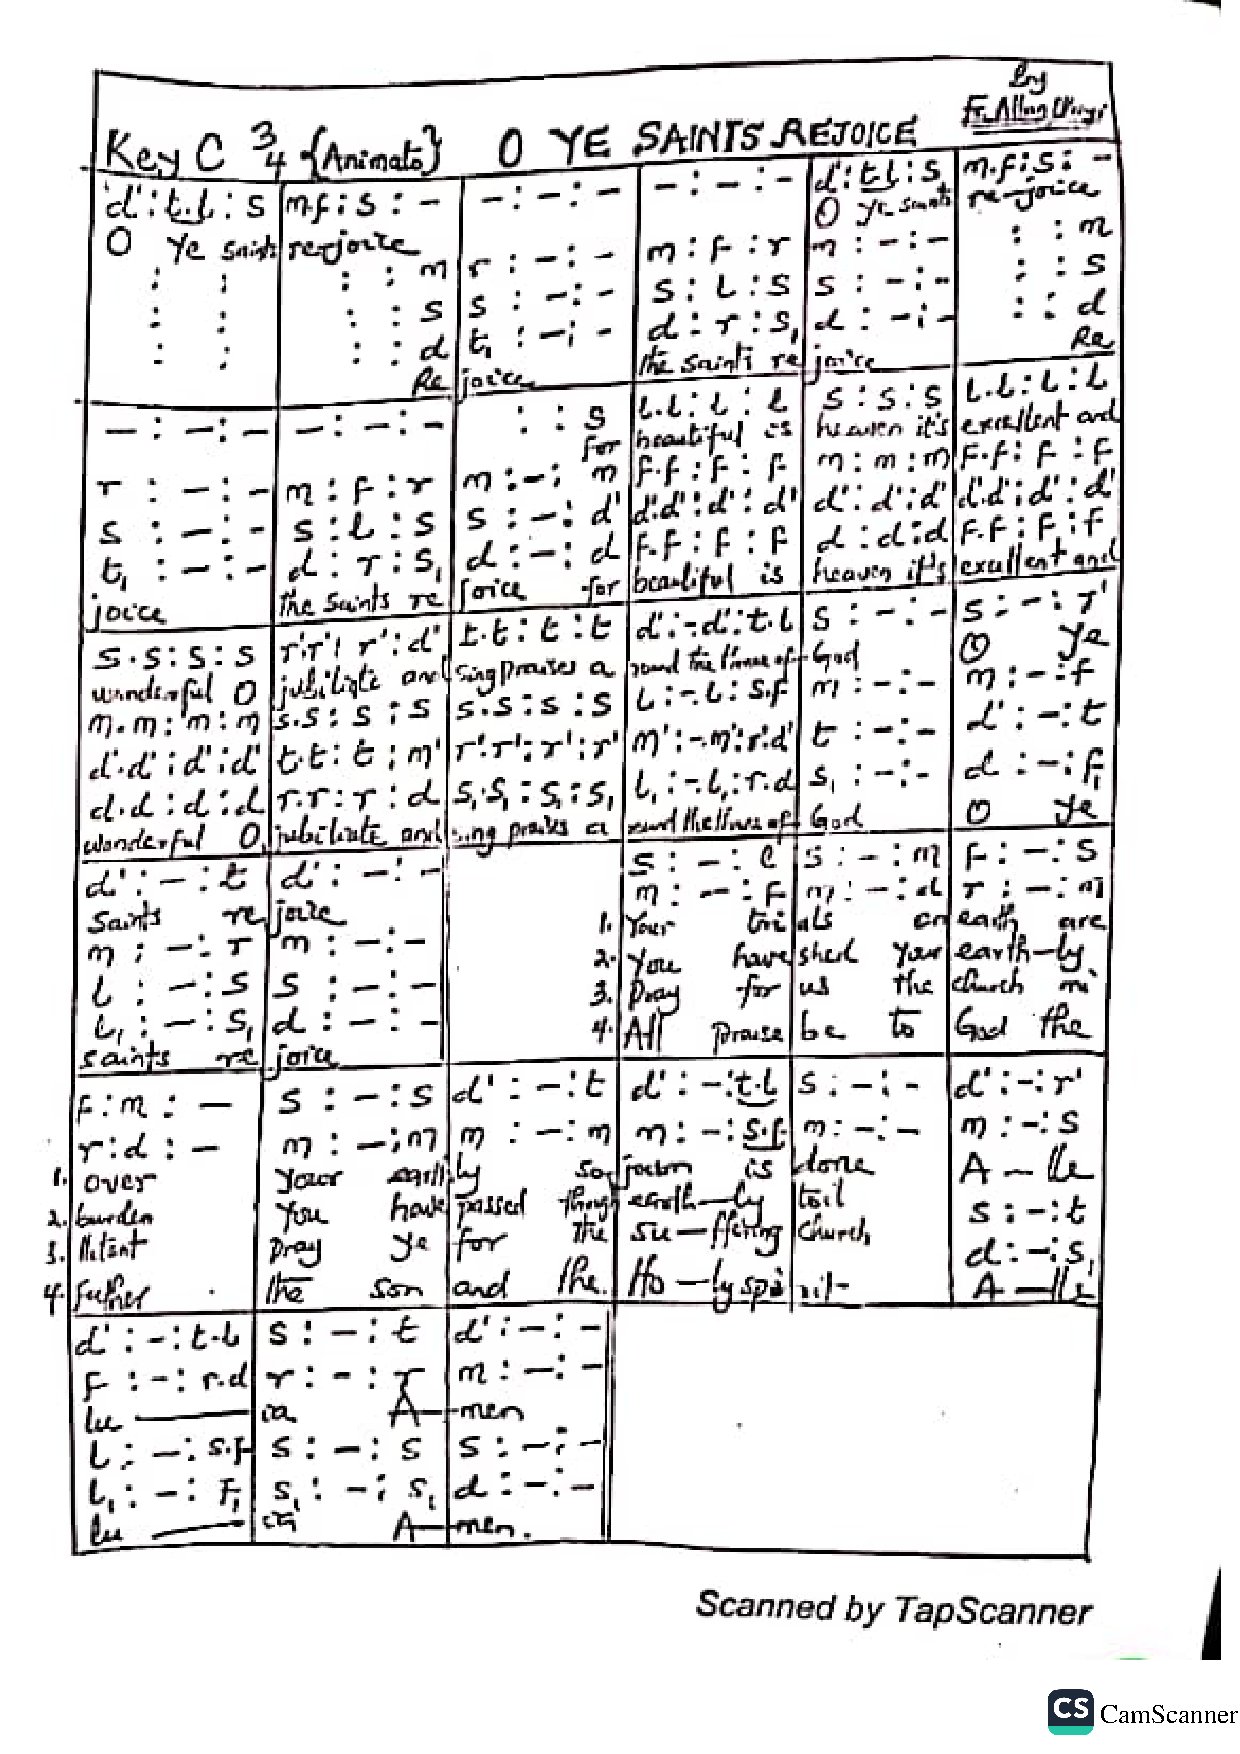 by
Fr. Allan Okugi
Key C 3/4 {Animato} O YE SAINTS REJOICE
d' : t.l : s | m.f : s : - | - : - : - | - : - : - | d' : t.l : s | m.f : s : -
O Ye saints | rejoice | | | O Ye saints | re-joice
: : | : : m | r : - : - | m : f : r | m : - : - | : : m
: : | : : s | s : - : - | s : l : s | s : - : - | : : s
: : | : : d | t, : - : - | d : r : s, | d : - : - | : : d
Re | joice | the saints re | joice | Re
- : - : - | - : - : - | : : s | l.l : l : l | s : s : s | l.l : l : l
for | beautiful is | heaven it's | excellent and
r : - : - | m : f : r | m : - : m | f.f : f : f | m : m : m | f.f : f : f
s : - : - | s : l : s | s : - : d' | d'.d' : d' : d' | d' : d' : d' | d'.d' : d' : d'
t, : - : - | d : r : s, | d : - : d | f.f : f : f | d : d : d | f.f : f : f
joice | the saints re | joice for | beautiful is | heaven it's | excellent and
s.s : s : s | r'.r' : r' : d' | t.t : t : t | d' : -.d' : t.l | s : - : - | s : - : r'
wonderful O | jubiliate and | sing praises a | round the throne of | God | O ye
m.m : m : m | s.s : s : s | s.s : s : s | l : -.l : s.f | m : - : - | m : - : f
d'.d' : d' : d' | t.t : t : m' | r'.r' : r' : r' | m' : -.m' : r'.d' | t : - : - | d' : - : t
d.d : d : d | r.r : r : d | s,.s, : s, : s, | l, : -.l, : r.d | s, : - : - | d : - : f,
wonderful O | jubiliate and | sing praises a | round the throne of | God | O ye
d' : - : t | d' : - : - | | s : - : l | s : - : m | f : - : s
m : - : f | m : - : d | r : - : m
saints re | joice
m : - : r | m : - : -
l : - : s | s : - : -
l, : - : s, | d : - : -
saints re | joice
1. Your tri | als on | earth are
2. You have | shed your | earth-ly
3. Pray for | us the | church mi
4. All praise | be to | God the
f : m : - | s : - : s | d' : - : t | d' : - : t.l | s : - : - | d' : - : r'
r : d : - | m : - : m | m : - : m | m : - : s.f | m : - : - | m : - : s
1. over | your earth | ly so | journ is | done | A - lle
2. burden | You have | passed through | earth-ly | toil | s : - : t
3. litant | Pray ye | for the | su-ffering | church | d : - : s,
4. Father | the son | and the | Ho-ly spi | rit- | A - lle
d' : - : t.l | s : - : t | d' : - : -
f : - : r.d | r : - : r | m : - : -
lu | ia A | men
l : - : s.f | s : - : s | s : - : -
l, : - : f, | s, : - : s, | d : - : -
lu | ia A | men.
Scanned by TapScanner
CS CamScanner